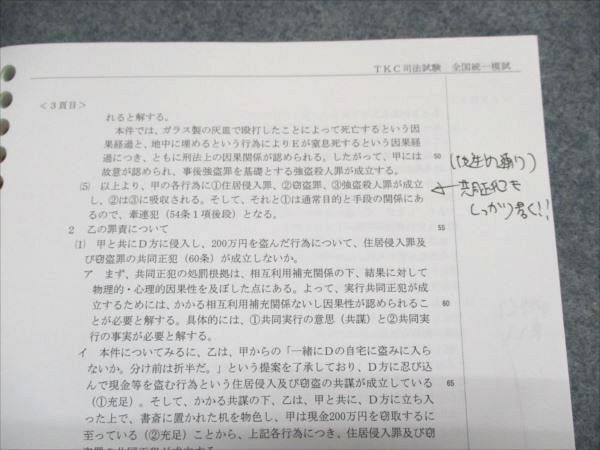 TKC司法試験 全国統一模試
<3頁目>
れると解する。
本件では、ガラス製の灰皿で殴打したことによって死亡するという因
果経過と、地中に埋めるという行為によりEが窒息死するという因果経
過につき、ともに刑法上の因果関係が認められる。したがって、甲には
故意が認められ、事後強盗罪を基礎とする強盗殺人罪が成立する。
50
⑸ 以上より、甲の各行為に①住居侵入罪、②窃盗罪、③強盗殺人罪が成立
し、②は③に吸収される。そして、それと①は通常目的と手段の関係にあ
るので、牽連犯(54条1項後段)となる。
共同正犯も
しっかり書く!!
2 乙の罪責について
55
⑴ 甲と共にD方に侵入し、200万円を盗んだ行為について、住居侵入罪及
び窃盗罪の共同正犯(60条)が成立しないか。
ア まず、共同正犯の処罰根拠は、相互利用補充関係の下、結果に対して
物理的・心理的因果性を及ぼした点にある。よって、実行共同正犯が成
立するためには、かかる相互利用補充関係ないし因果性が認められるこ
60
とが必要と解する。具体的には、①共同実行の意思(共謀)と②共同実
行の事実が必要と解する。
イ 本件についてみるに、乙は、甲からの「一緒にDの自宅に盗みに入ら
ないか。分け前は折半だ。」という提案を了承しており、D方に忍び込
んで現金等を盗む行為という住居侵入及び窃盗の共謀が成立している
65
(①充足)。そして、かかる共謀の下、乙は、甲と共に、D方に立ち入
った上で、書斎に置かれた机を物色し、甲は現金200万円を窃取するに
至っている(②充足)ことから、上記各行為につき、住居侵入罪及び窃